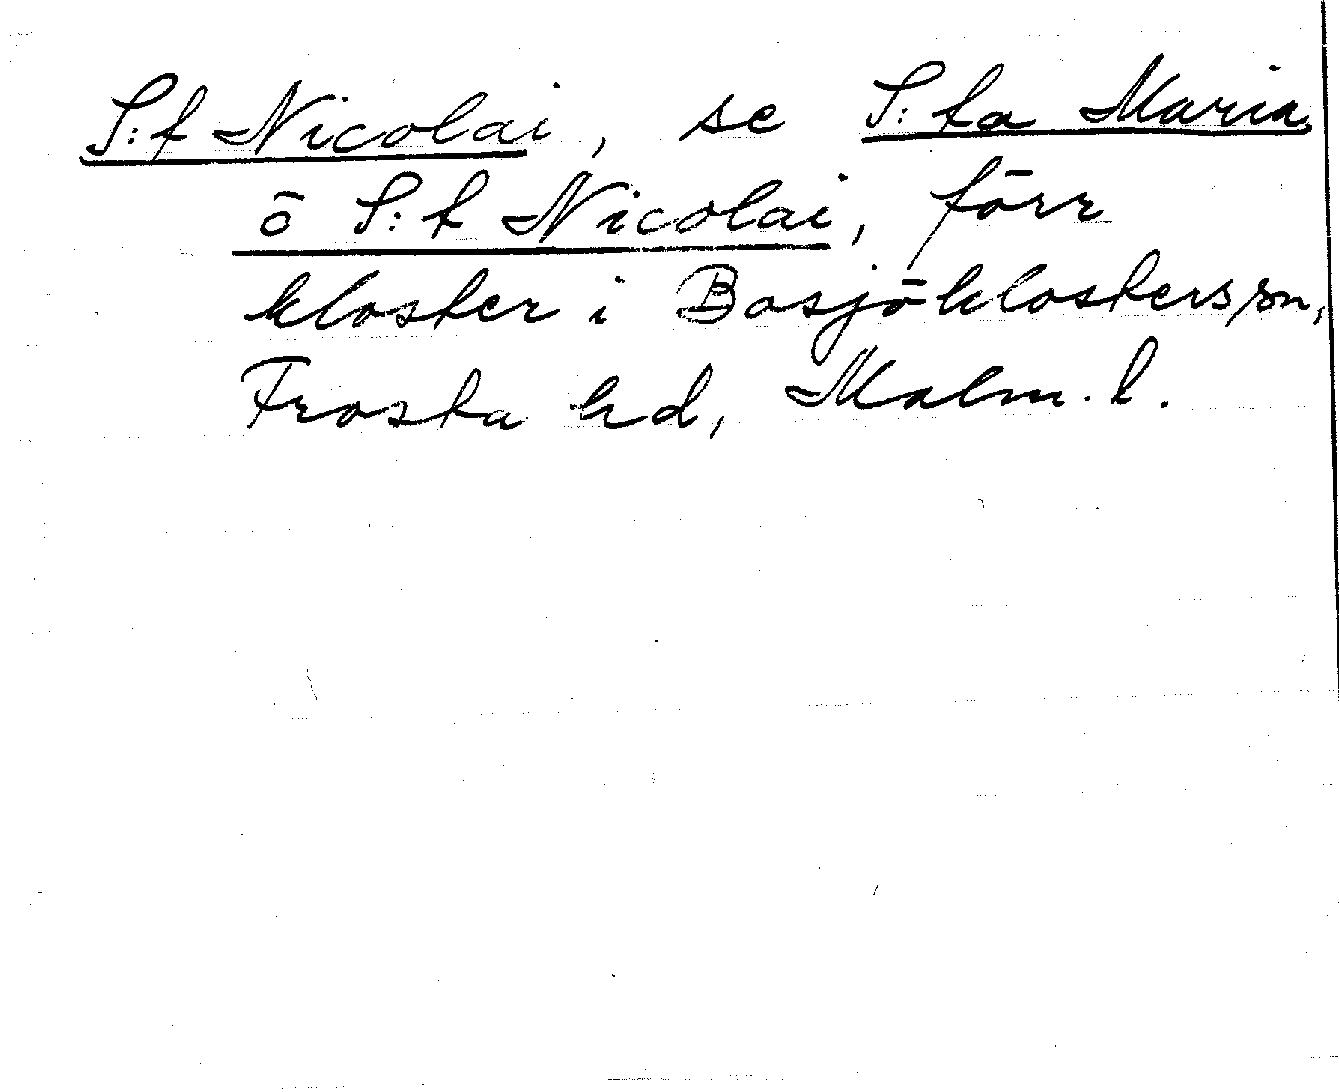 S:t Nicolai, se S:ta Maria
o S:t Nicolai, förr
kloster i Bosjöklosters sn,
Frosta hd, Malm. l.